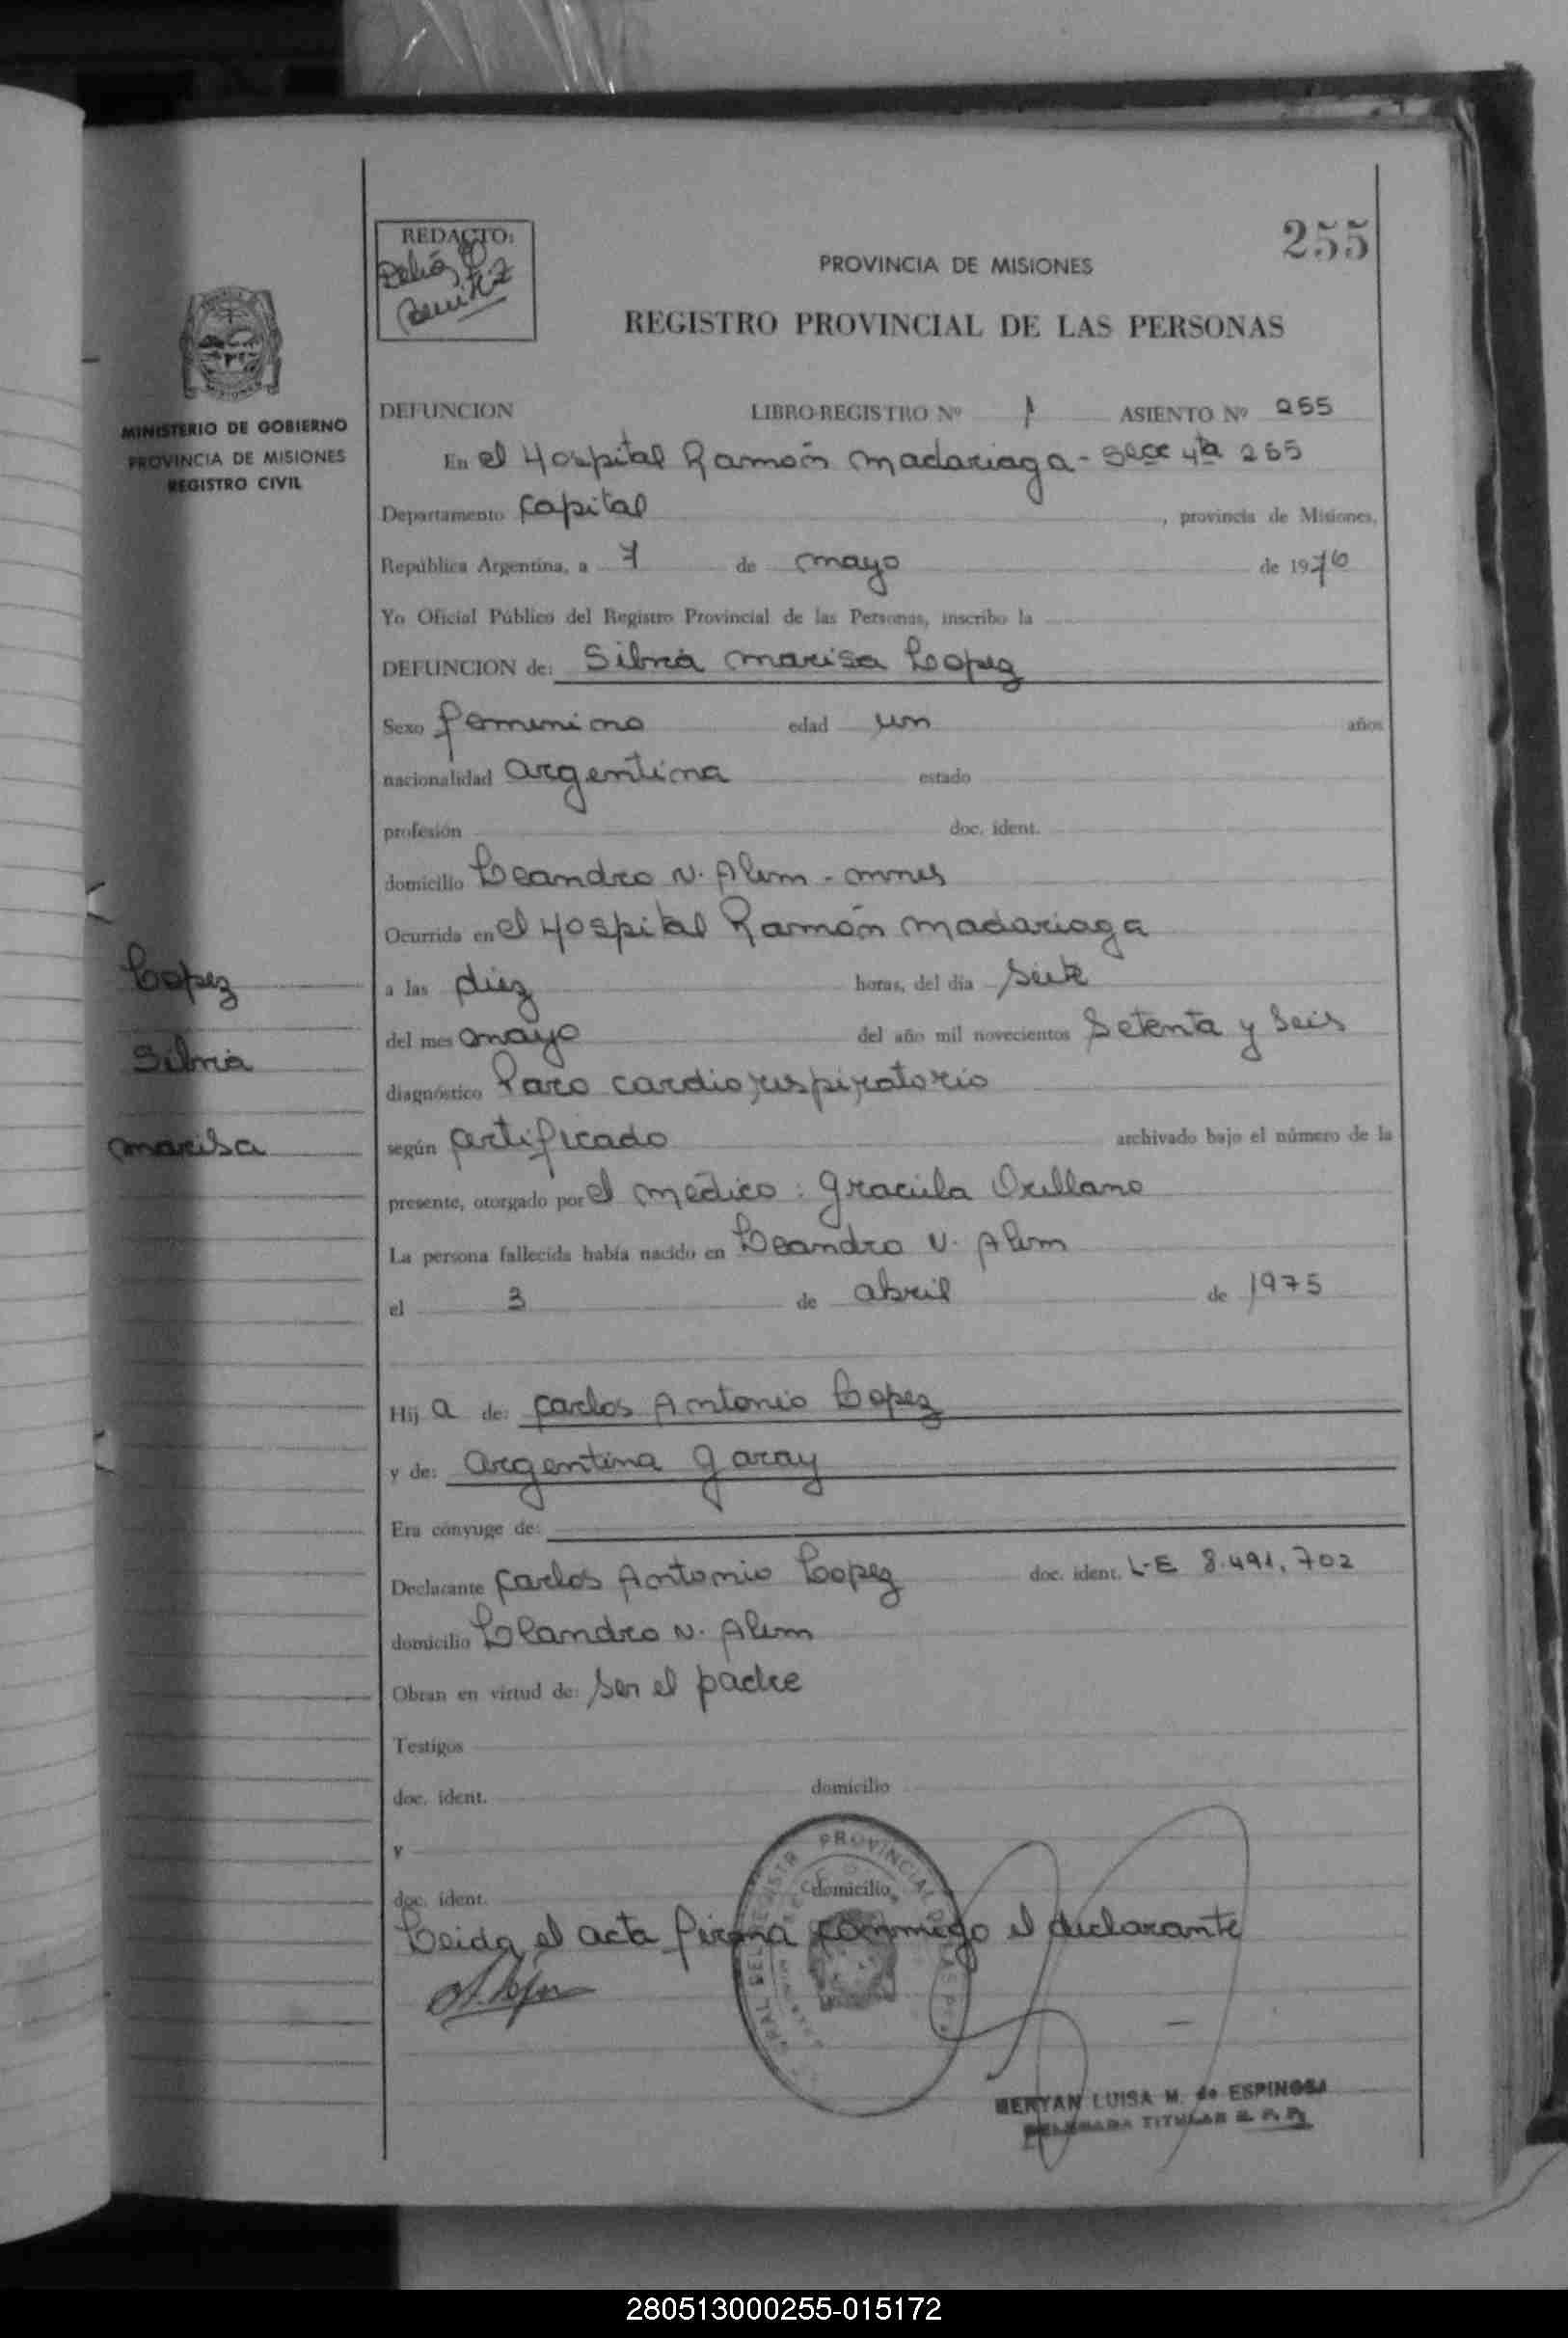 255
REDACTO:
Delia
Benitez
PROVINCIA DE MISIONES
REGISTRO PROVINCIAL DE LAS PERSONAS
MINISTERIO DE GOBIERNO
PROVINCIA DE MISIONES
REGISTRO CIVIL
DEFUNCION LIBRO-REGISTRO Nº 1 ASIENTO Nº 255
En el Hospital Ramón Madariaga - Secc 4ta 255
Departamento Capital, provincia de Misiones,
República Argentina, a 7 de mayo de 1976
Yo Oficial Público del Registro Provincial de las Personas, inscribo la
DEFUNCION de: Silvia Marisa Lopez
Sexo femenino edad un años
nacionalidad argentina estado
profesión doc. ident.
domicilio Leandro N. Alem - Mnes
Ocurrida en el Hospital Ramón Madariaga
a las diez horas, del día siete
del mes mayo del año mil novecientos Setenta y Seis
diagnóstico Paro cardio respiratorio
según certificado archivado bajo el número de la
presente, otorgado por el medico: Graciela Orellano
La persona fallecida había nacido en Leandro N. Alem
el 3 de abril de 1975
Lopez
Silvia
Marisa
Hija de: Carlos Antonio Lopez
y de: Argentina Garay
Era cónyuge de:
Declarante Carlos Antonio Lopez doc. ident. L-E 8.491.702
domicilio Leandro N. Alem
Obran en virtud de: Ser el padre
Testigos
doc. ident. domicilio
y
doc. ident. domicilio
Leida el acta firma conmigo el declarante
PROVINCIAL
LUISA M. de ESPINOSA
TITULAR
280513000255-015172